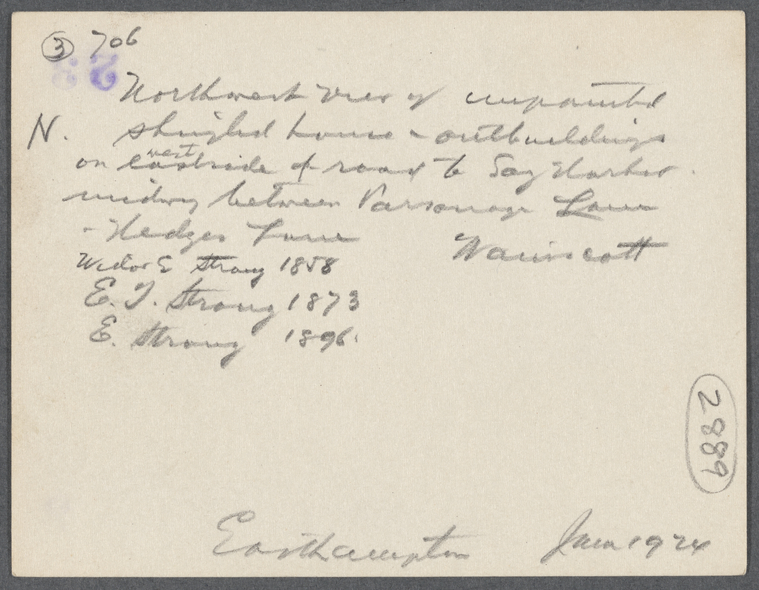 ③ 706
Northwest view of unpainted
N. shingled house & outbuildings
west
on eastside of road to Sag Harbor.
midway between Parsonage Lane
& Hedges Lane Wainscott
Widow E Strong 1858
E. T. Strong 1873
E. Strong 1896
2889
Easthampton Jan 1924